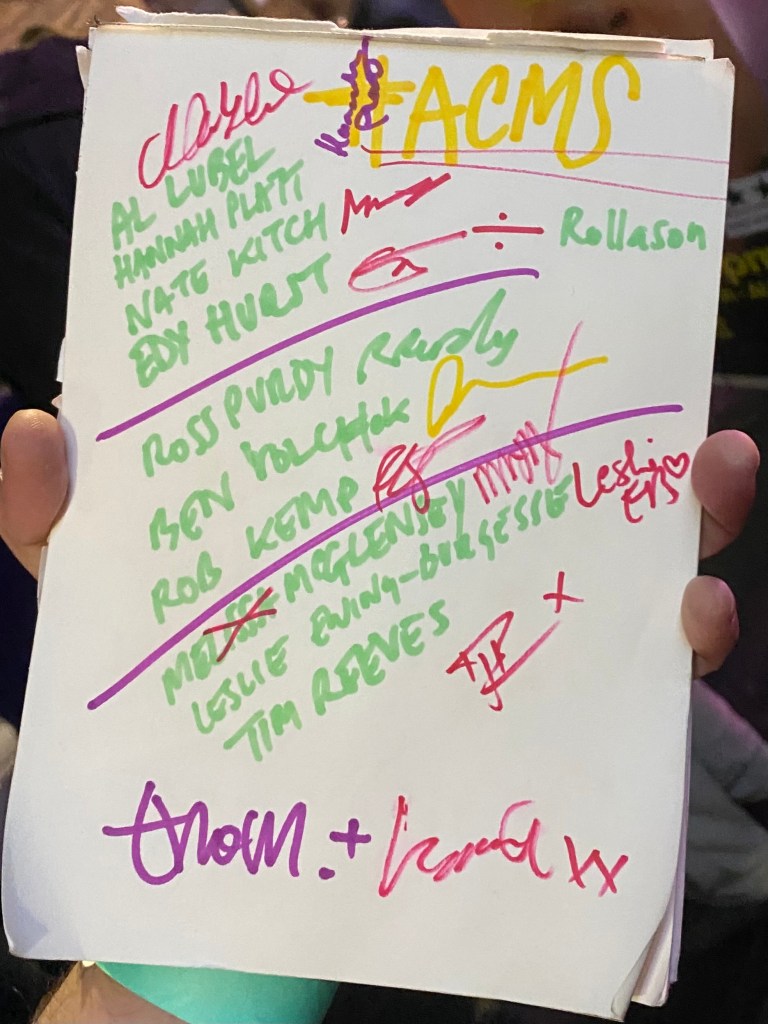 #ACMS
AL LUBEL
HANNAH PLATT
NATE KITCH
÷ Rollason
EDY HURST
ROSS PURDY
BEN VOLCHOK
ROB KEMP
MELISSA MCGLENSEY
LESLIE EWING-BURGESSE
Leslie ♡
EB
TIM REEVES
thom. +
xx